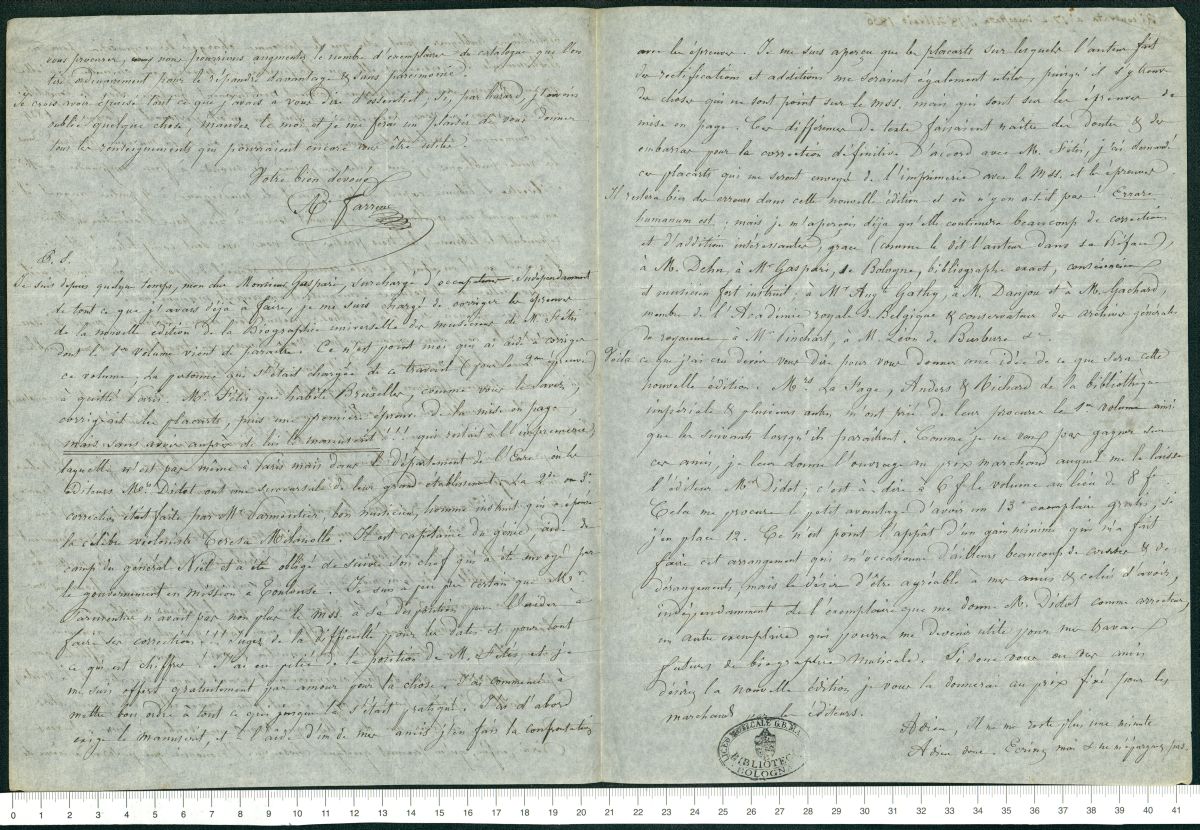 vous procurer, nous pourrions augmenter le nombre d'exemplaires du catalogue que l'on
tire ordinairement pour le répandre davantage & sans parcimonie.
Je crois vous épuisé tout ce que j'avais à vous dire d'essentiel; si, par hasard, j'avais
oublié quelque chose, mandez le moi et je me ferai un plaisir de vous donner
tous les renseignements qui pourraient encore vous être utiles.
Votre bien dévoué
A. Farrenc
P. S.
Je suis depuis quelque temps, mon cher Monsieur Gaspari, surchargé d'occupations. Indépendamment
de tout ce que j'avais déjà à faire, je me suis chargé de corriger les épreuves
de la nouvelle édition de la Biographie universelle des musiciens de M. Fétis
dont le 1er volume vient de paraître. Ce n'est point moi qui ai aidé à corriger
ce volume; la personne qui s'était chargée de ce travail (pour la 2me épreuve)
a quitté Paris. Mr. Fétis qui habite Bruxelles, comme vous le savez,
corrigeait les placarts, puis une première épreuve de la mise en page,
mais sans avoir auprès de lui le manuscrit!!! qui restait à l'imprimerie,
laquelle n'est pas même à Paris mais dans le Département de l'Eure où les
éditeurs Mrs. Didot ont une succursale de leur grand établissement. La 2de ou 3e
correction était faite par Mr. Parmentier, bon musicien, homme instruit qui a épousé
la célèbre violoniste Teresa Milanollo. Il est capitaine du génie, aide de
camp du général Niel et a été obligé de suivre son chef qui a été envoyé par
le gouvernement en mission à Toulouse. Je suis à peu près certain que Mr.
Parmentier n'avait pas non plus le mss. à sa disposition pour l'aider à
faire ses corrections!!! jugez de la difficulté pour les dates et pour tout
ce qui est chiffres! J'ai eu pitié de la position de M. Fétis et je
me suis offert gratuitement par amour pour la chose. J'ai commencé à
mettre bon ordre à tout ce qui jusque là s'était pratiqué. J'ai d'abord
exigé le manuscrit, et à l'aide d'un de mes amis j'en fais la confrontation
avec les épreuves. Je me suis aperçu que les placarts sur lesquels l'auteur fait
des rectifications et additions me seraient également utiles, puisqu'il s'y trouve
des choses qui ne sont point sur le mss. mais qui sont sur les épreuves de
mise en page. Ces différences de texte faisaient naître des doutes & des
embarras pour la correction définitive. D'accord avec M. Fétis, j'ai demandé
ces placarts qui me seront envoyés de l'imprimerie avec le mss. et les épreuves.
Il restera bien des erreurs dans cette nouvelle édition et où n'y en a-t-il pas! Errare
humanum est; mais je m'aperçois déjà qu'elle contiendra beaucoup de corrections
et d'additions intéressantes, grace (comme le dit l'auteur dans sa préface),
à M. Dehn, à Mr. Gaspari, de Bologne, bibliographe exact, consciencieux
et musicien fort instruit, à Mr. Auge. Gathy, à M. Danjou et à M. Gachard,
membre de l'Académie royale de Belgique & conservateur des archives générales
du royaume, à Mr. Pinchart, à M. Léon de Burbure &.
Voilà ce que j'ai cru devoir vous dire pour vous donner une idée de ce que sera cette
nouvelle édition. Mrs. La Fage, Anders & Richard de la bibliothèque
impériale & plusieurs autres, m'ont prié de leur procurer le 1er volume ainsi
que les suivants lorsqu'ils paraîtront. Comme je ne veux pas gagner sur
ces amis, je leur donne l'ouvrage au prix marchand auquel me le laisse
l'éditeur Mr. Didot, c'est-à-dire à 6 f. le volume au lieu de 8 f.
Cela me procure le petit avantage d'avoir un 13e exemplaire gratis, si
j'en place 12. Ce n'est point l'appât d'un gain minime qui m'a fait
faire cet arrangement qui m'occasionne d'ailleurs beaucoup de courses & de
dérangements, mais le désir d'être agréable à mes amis & celui d'avoir,
indépendamment de l'exemplaire que me donne M. Didot comme correcteur,
un autre exemplaire qui pourra me devenir utile pour mes travaux
futurs de biographie musicale. Si donc vous ou vos amis
désirez la nouvelle édition je vous la donnerai au prix fixé pour les
marchands par les éditeurs.
Adieu, il ne me reste plus une minute
Adieu donc. Ecrivez moi & ne m'épargnez pas.
LICEO MUSICALE G.B. MA
BIBLIOTEC
BOLOGNA
0 1 2 3 4 5 6 7 8 9 10 11 12 13 14 15 16 17 18 19 20 21 22 23 24 25 26 27 28 29 30 31 32 33 34 35 36 37 38 39 40 41